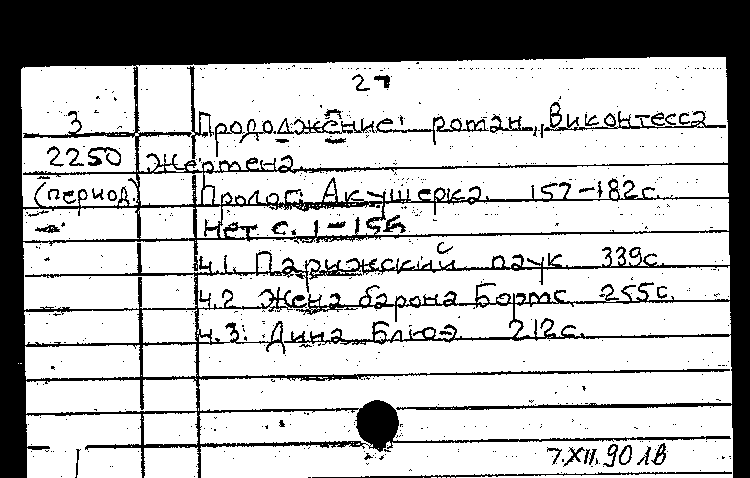 27
3 Продолжение: роман „Виконтесса
2250 Жермена.
(период.) Пролог: Акушерка. 157-182с.
Нет с. 1-156
ч.1. Парижский паук 339с.
ч.2 Жена барона Бортс 255с.
ч.3. Дина Блюэ 212с.
7.XII.90 ЛВ